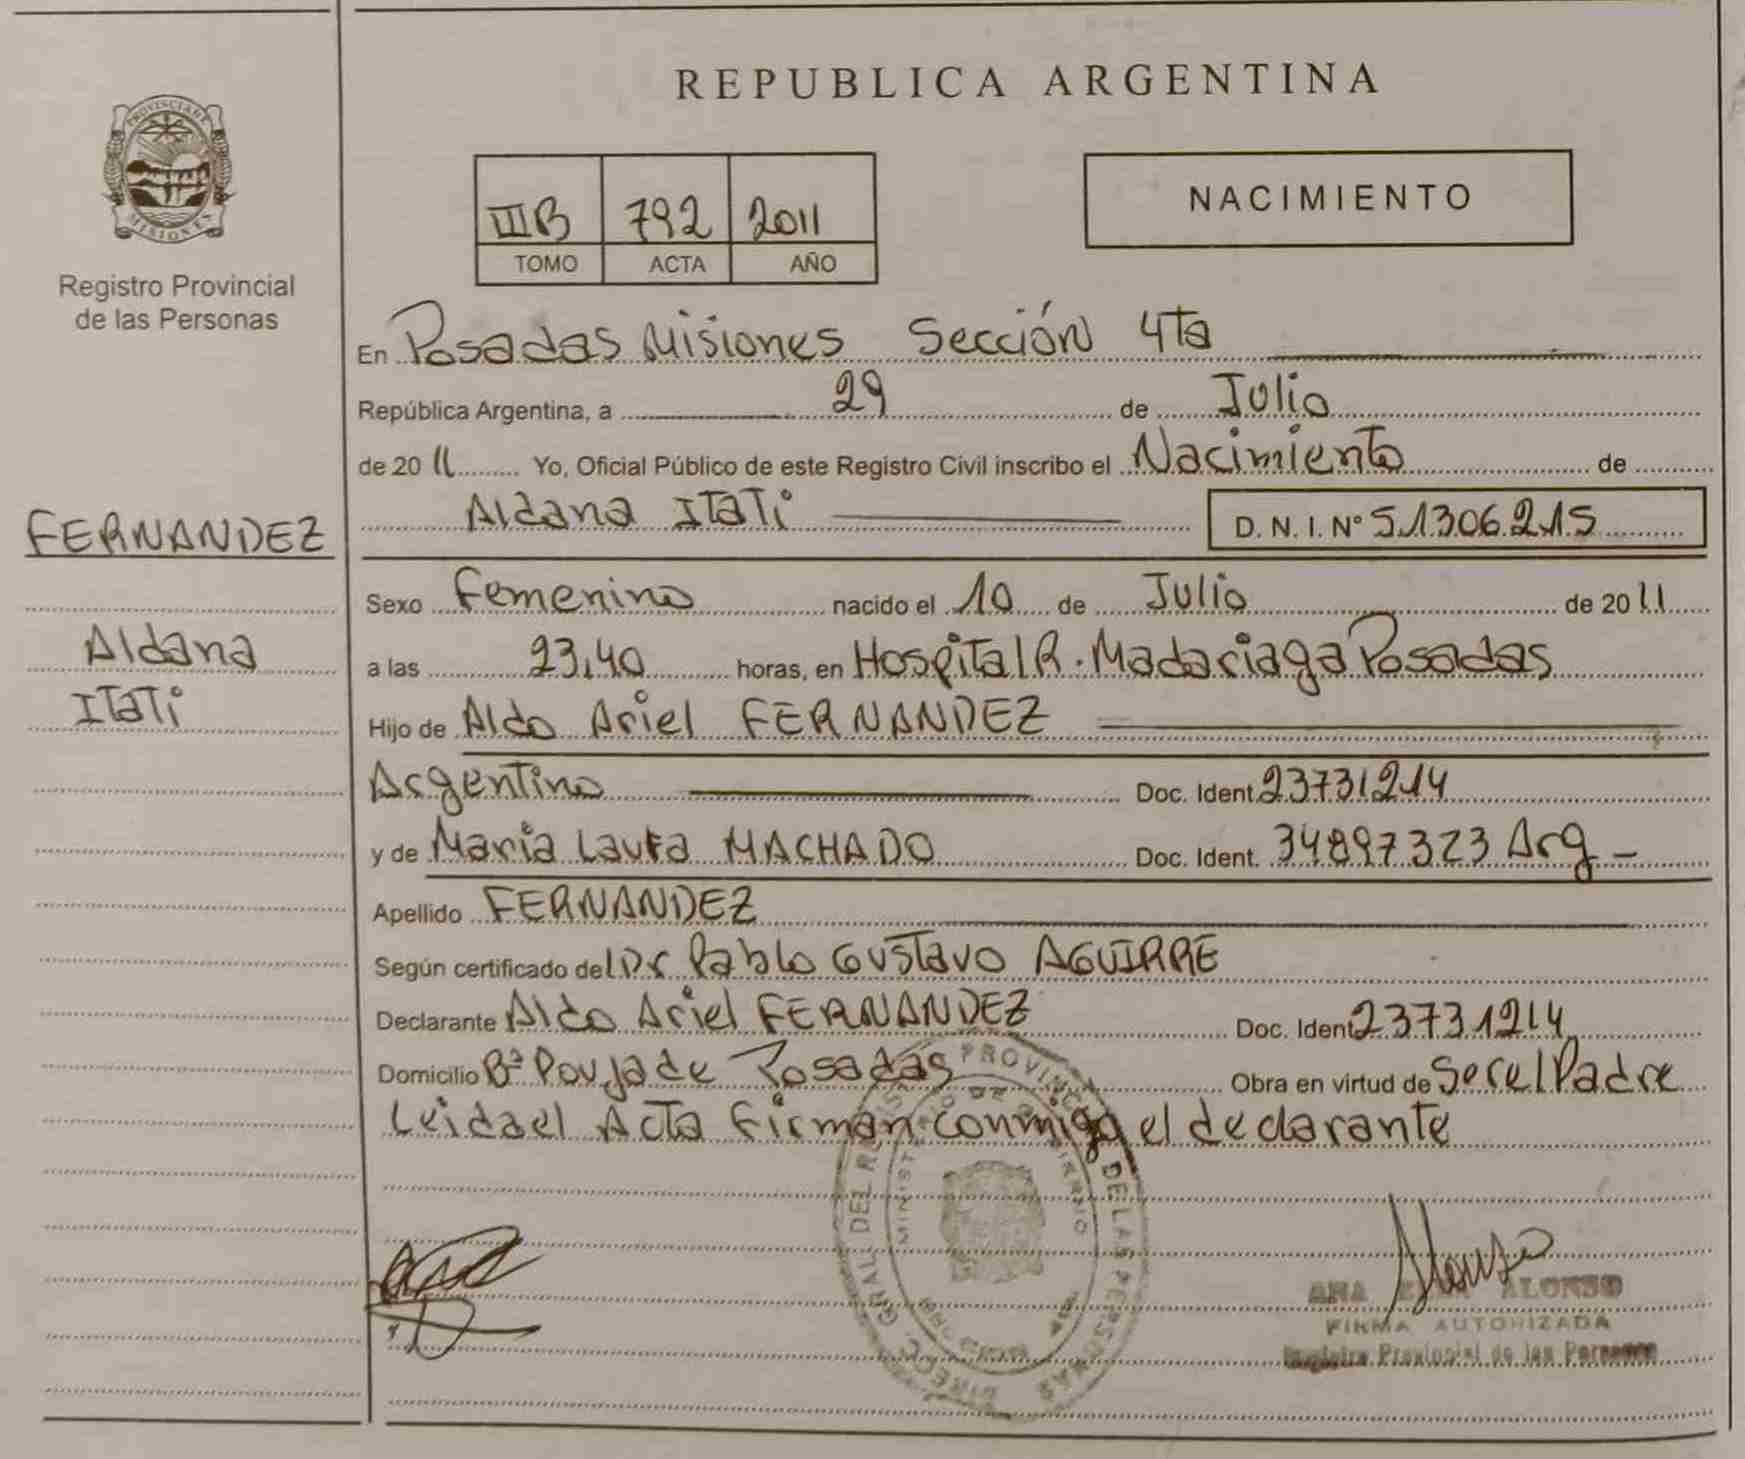 REPUBLICA ARGENTINA
PROVINCIA DE
MISIONES
Registro Provincial
de las Personas
IIIB 792 2011
TOMO ACTA AÑO
NACIMIENTO
En Posadas Misiones Sección 4Ta
República Argentina, a 29 de Julio
de 2011 Yo, Oficial Público de este Registro Civil inscribo el Nacimiento de
Aldana ITaTi D. N. I. Nº 51.306.215
FERNANDEZ
Aldana
ITaTi
Sexo Femenino nacido el 10 de Julio de 2011
a las 23,40 horas, en Hospital R. Madariaga Posadas
Hijo de Aldo Ariel FERNANDEZ
Argentino Doc. Ident 23731214
y de Maria Laura MACHADO Doc. Ident. 34897323 Arg
Apellido FERNANDEZ
Según certificado del Dr Pablo Gustavo AGUIRRE
Declarante Aldo Ariel FERNANDEZ Doc. Ident 23731214
Domicilio Bº Poujade Posadas Obra en virtud de Ser el Padre
Leida el Acta Firman conmigo el declarante
DIREC. GRAL. DEL PROVINCIAL DE LAS PERSONAS
ANA ALONSO
FIRMA AUTORIZADA
Registro Provincial de las Personas